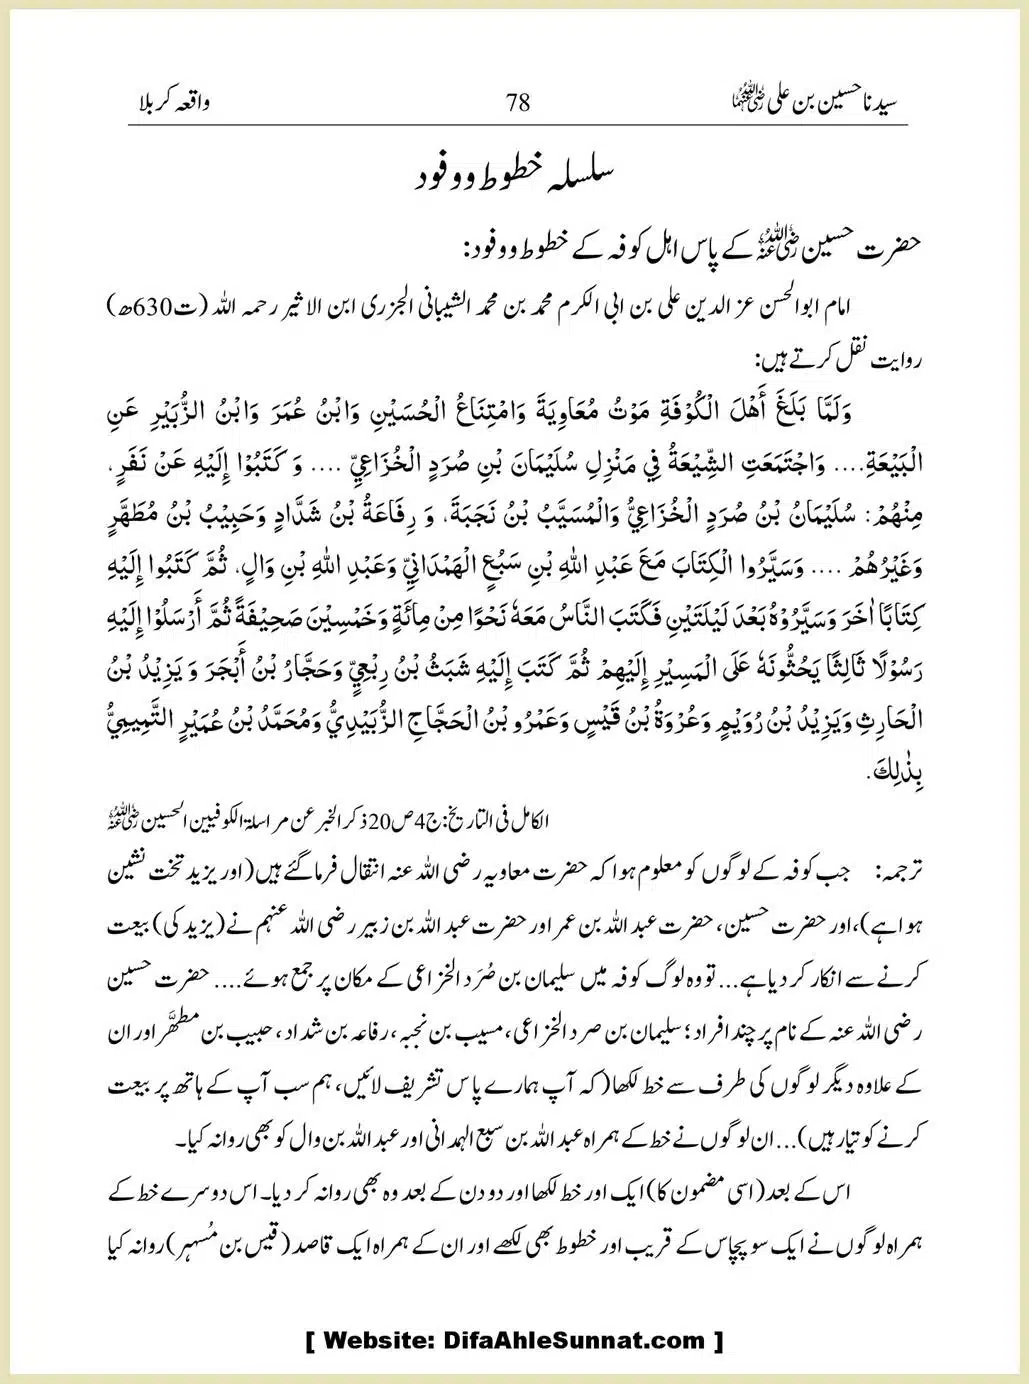 سیدنا حسین بن علی رضی اللہ عنہما 78 واقعہ کربلا
سلسلہ خطوط و وفود
حضرت حسین رضی اللہ عنہ کے پاس اہل کوفہ کے خطوط و وفود:
امام ابوالحسن عز الدین علی بن ابی الکرم محمد بن محمد الشیبانی الجزری ابن الاثیر رحمہ اللہ (ت630ھ)
روایت نقل کرتے ہیں:
وَلَمَّا بَلَغَ أَهْلَ الْكُوْفَةِ مَوْتُ مُعَاوِيَةَ وَامْتِنَاعُ الْحُسَيْنِ وَابْنُ عُمَرَ وَابْنُ الزُّبَيْرِ عَنِ
الْبَيْعَةِ.... وَاجْتَمَعَتِ الشِّيْعَةُ فِي مَنْزِلِ سُلَيْمَانَ بْنِ صُرَدٍ الْخُزَاعِيِّ .... وَ كَتَبُوْا إِلَيْهِ عَنْ نَفَرٍ،
مِنْهُمْ: سُلَيْمَانُ بْنُ صُرَدٍ الْخُزَاعِيُّ وَالْمُسَيَّبُ بْنُ نَجَبَةَ، وَ رِفَاعَةُ بْنُ شَدَّادٍ وَحَبِيْبُ بْنُ مُطَهَّرٍ
وَغَيْرُهُمْ .... وَسَيَّرُوا الْكِتَابَ مَعَ عَبْدِ اللّٰهِ بْنِ سَبُعٍ الْهَمْدَانِيِّ وَعَبْدِ اللّٰهِ بْنِ وَالٍ، ثُمَّ كَتَبُوا إِلَيْهِ
كِتَابًا اُخَرَ وَسَيَّرُوْهُ بَعْدَ لَيْلَتَيْنِ فَكَتَبَ النَّاسُ مَعَهٗ نَحْوًا مِنْ مِائَةٍ وَخَمْسِيْنَ صَحِيْفَةً ثُمَّ أَرْسَلُوْا إِلَيْهِ
رَسُوْلًا ثَالِثًا يَحُثُّوْنَهٗ عَلَى الْمَسِيْرِ إِلَيْهِمْ ثُمَّ كَتَبَ إِلَيْهِ شَبَثُ بْنُ رِبْعِيٍّ وَحَجَّارُ بْنُ أَبْجَرَ وَ يَزِيْدُ بْنُ
الْحَارِثِ وَيَزِيْدُ بْنُ رُوَيْمٍ وَعُرْوَةُ بْنُ قَيْسٍ وَعَمْرُو بْنُ الْحَجَّاجِ الزُّبَيْدِيُّ وَمُحَمَّدُ بْنُ عُمَيْرٍ التَّمِيْمِيُّ
بِذٰلِكَ.
الکامل فی التاریخ: ج4 ص20 ذکر الخبر عن مراسلۃ الکوفیین الحسین رضی اللہ عنہ
ترجمہ: جب کوفہ کے لوگوں کو معلوم ہوا کہ حضرت معاویہ رضی اللہ عنہ انتقال فرما گئے ہیں (اور یزید تخت نشین
ہوا ہے)، اور حضرت حسین، حضرت عبد اللہ بن عمر اور حضرت عبد اللہ بن زبیر رضی اللہ عنہم نے (یزید کی) بیعت
کرنے سے انکار کر دیا ہے... تو وہ لوگ کوفہ میں سلیمان بن صُرَد الخزاعی کے مکان پر جمع ہوئے.... حضرت حسین
رضی اللہ عنہ کے نام پر چند افراد؛ سلیمان بن صرد الخزاعی، مسیب بن نجبہ، رفاعہ بن شداد، حبیب بن مطہَّر اور ان
کے علاوہ دیگر لوگوں کی طرف سے خط لکھا (کہ آپ ہمارے پاس تشریف لائیں، ہم سب آپ کے ہاتھ پر بیعت
کرنے کو تیار ہیں)... ان لوگوں نے خط کے ہمراہ عبد اللہ بن سبع الہمدانی اور عبد اللہ بن وال کو بھی روانہ کیا۔
اس کے بعد (اسی مضمون کا) ایک اور خط لکھا اور دو دن کے بعد وہ بھی روانہ کر دیا۔ اس دوسرے خط کے
ہمراہ لوگوں نے ایک سو پچاس کے قریب اور خطوط بھی لکھے اور ان کے ہمراہ ایک قاصد (قیس بن مُسہر) روانہ کیا
[ Website: DifaAhleSunnat.com ]